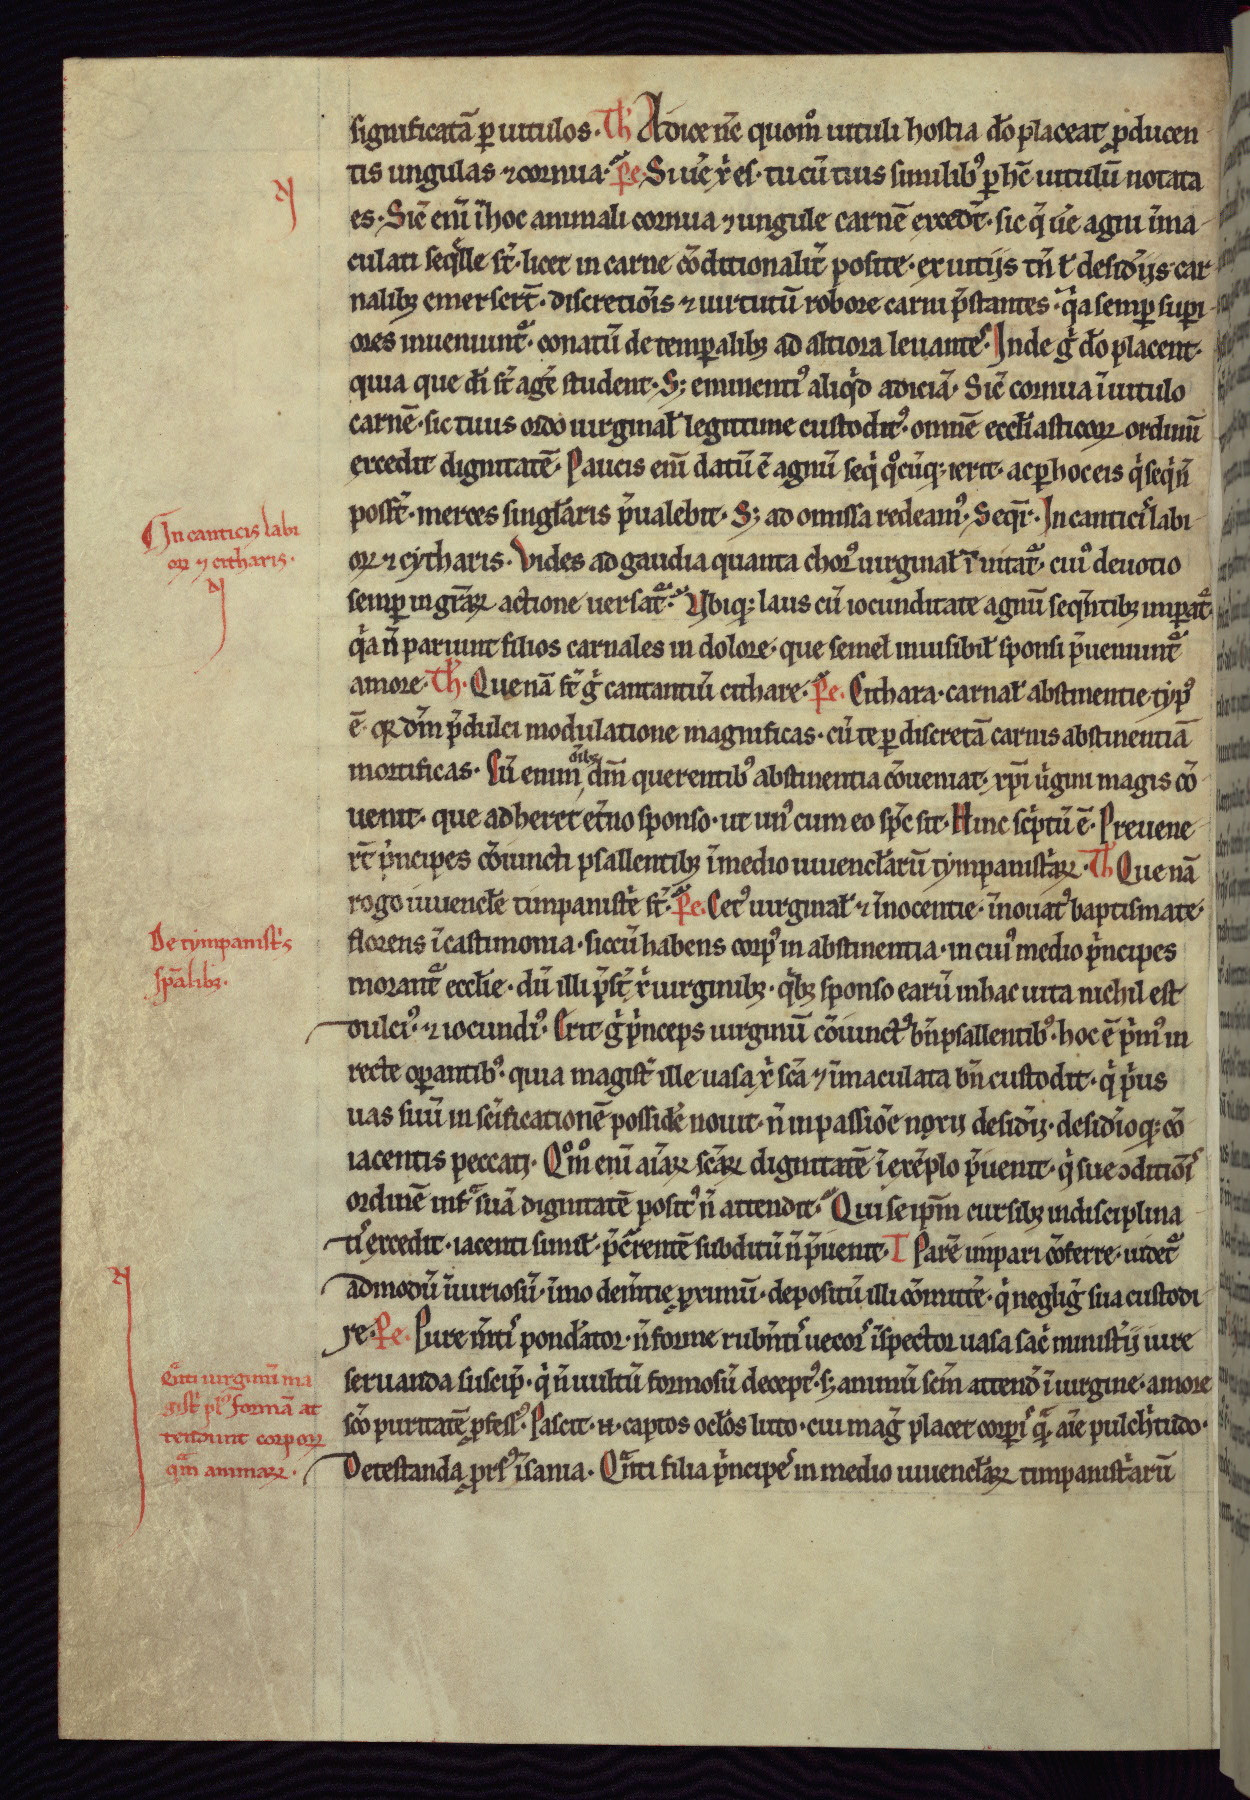 significatā p uitulos. Th Adice nc̄ quom̊ uituli hostia do placeat ꝓducen
tis ungulas ⁊ cornua. Pe. Si uic̄ xp̄i es. tu cū tuis similibꝰ p hc̄ uitulū notata
es. Sic̄ eni ī hoc animali cornua ⁊ ungule carnē excedt̄. sic q̄ uē agni īma
culati seqͣlle st̄. licet in carne cōditionalit̄ posite. ex uitijs tn̄ ł desidijs car
nalibꝫ emersert̄. discretiōis ⁊ uirtutū robore carni p̄stantes. qͥa semp supi
ores inueniunt᷑. conatū de temporalibꝫ ad altiora leuantes. Inde gͦ do placent.
quia que di st̄ agē student. Sꝫ eminentiꝰ aliqͥd adiciā. Sic̄ cornua ī uitulo
carnē. sic tuus ordo uirginał legitime custoditꝰ. omnē eccl̄iasticoꝝ ordinū
excedit dignitatē. Paucis eni datū ē agnū seqͥ qͦcūqꝫ ierit. ac p hoc eis qͥ seqͥ n̄
posst̄. merces singlaris p̄ualebit. Sꝫ ad omissa redeamꝰ. Seqr̄. In canticis labi
oꝝ ⁊ cytharis. Vides ad gaudia quanta chorꝰ uirginał īuitat᷑. cuiꝰ deuotio
semp in gr̄aꝝ actione uersat᷑. Vbiqꝫ laus cū iocunditate agnū seqn̄tibꝫ imperat᷑
qͥa n̄ pariunt filios carnales in dolore. que semel inuisibił sponsi p̄ueniunt᷑
amore. Th. Que nā st̄ gͦ cantantiū cithare. Pe. Cithara. carnał abstinentie typꝰ
ē. qͣ dm̄ p̄dulci modulatione magnificas. cū te p discretā carnis abstinentiā
mortificas. Cū enim oībꝫ dm̄ querentibꝰ abstinentia cōueniat. xp̄i uͥgini magis cō
uenit. que adheret et̄no sponso. ut unꝰ cum eo sp̄c sit. Hinc scͥptū ē. Preuene
rt̄ pͥncipes cōiuncti psallentibꝫ ī medio iuuenclarū tympanistͥaꝝ. Th Que nā
rogo iuuencle timpanistͥe st̄. Pe. Cetꝰ uirginał ⁊ īnocentie. īnouatꝰ baptismate.
florens ī castimonia. siccū habens corpꝰ in abstinentia. in cuiꝰ medio pͥncipes
morant᷑ eccl̄ie. dū illi p̄st̄ xͥ uirginibꝫ. qͥbꝫ sponso earū in hac uita nichil est
dulciꝰ ⁊ iocundiꝰ. Erit gͦ pͥnceps uirginū cōiunctꝰ bn̄ psallentibꝰ. hoc ē pͥmꝰ in
recte operantibꝰ. quia magistͥ ille uasa xͥ scā ⁊ īmaculata bn̄ custodit. qͥ pͥus
uas suū in scīficationē possidē nouit. n̄ in passiōe noxij desidij. desidioqꝫ cō
iacentis peccati. Qͦm̊ eni aīaꝝ scāꝝ dignitatē ī exēplo p̄uenit. qͥ sue ꝯditiōis
ordinē intͣ suā dignitatē positꝰ n̄ attendit. Qui se ipm̄ cursibꝫ indisciplina
tis excedit. iacenti similͥ. p̄cͨrentē subditū n̄ p̄uenit. T Parē inpari cōferre. uidet᷑
admodū īiuriosū. īmo dem̄tie ꝓximū. depositū illi cōmittē. qͥ negligͭ sua custodi
re. Pe. Iure mn̄tis pondātor. n̄ forme rubn̄tis uecors īspector uasa sacͥ ministͥij iure
seruanda suscipͭ. qͥ n̄ uultū formosū deceptꝰ. sꝫ animū scm̄ attendͭ ī uirgine. amore
scō puritatē ꝓfessꝰ. Pascit. n̄. captos oclos luto. cui magͥ placet corpis qͣ aīe pulchͥtudo.
Detestanda ꝓrsꝰ īsania. Qͣnti filia pͥncipes in medio iuuenclaꝝ timpanistͥarū
In canticis labi
oꝝ ⁊ citharis.
De tympanistͥs
sp̄alibꝫ.
Qͣnti uirginū ma
gistͥ plꝰ formā at
tendunt corpoꝝ
qͣm animaꝝ.